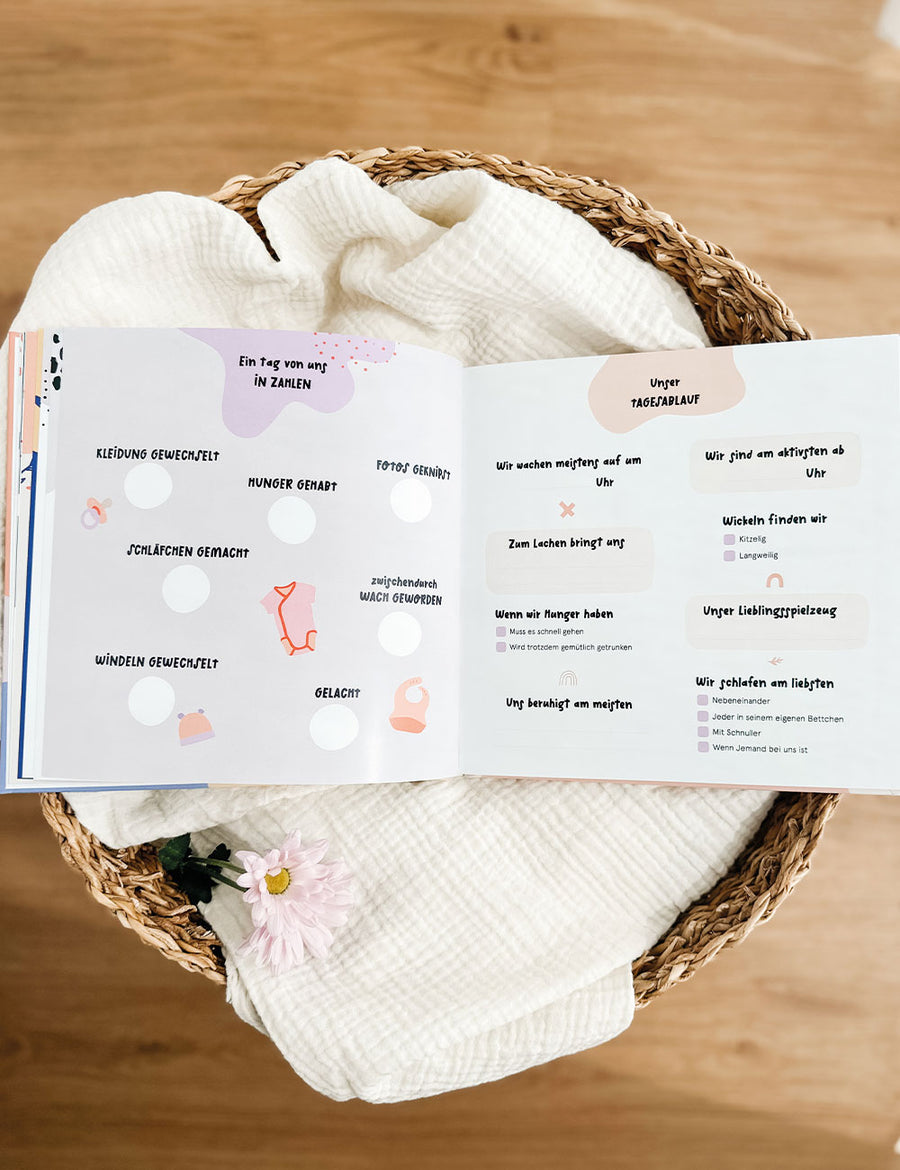 Ein Tag von uns
IN ZAHLEN
KLEIDUNG GEWECHSELT
HUNGER GEHABT
FOTOS GEKNIPST
SCHLÄFCHEN GEMACHT
zwischendurch
WACH GEWORDEN
WINDELN GEWECHSELT
GELACHT
Unser
TAGESABLAUF
Wir wachen meistens auf um
Uhr
Zum Lachen bringt uns
Wenn wir Hunger haben
Muss es schnell gehen
Wird trotzdem gemütlich getrunken
Uns beruhigt am meisten
Wir sind am aktivsten ab
Uhr
Wickeln finden wir
Kitzelig
Langweilig
Unser Lieblingsspielzeug
Wir schlafen am liebsten
Nebeneinander
Jeder in seinem eigenen Bettchen
Mit Schnuller
Wenn Jemand bei uns ist